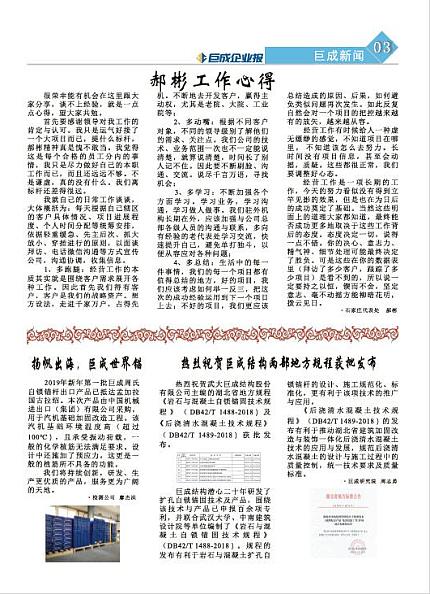 巨成企业报
巨成新闻
03
郝彬工作心得
很荣幸能有机会在这里跟大
家分享，谈不上经验，就是一点
点心得，望大家共勉。
首先要感谢领导对我工作的
肯定与认可。我只是运气好接了
一个大项目而已，提什么标杆，
郝彬精神真是愧不敢当，我觉得
这是每个合格的员工分内的事
情，我只是尽力做好自己的本职
工作而已，而且还远远不够。不
是谦虚，真的没有什么，我们离
标杆还差得很远。
我就自己的日常工作谈谈。
大体概括为：每天根据自己辖区
的客户具体情况、项目进展程
度、个人时间分配等统筹安排。
依据轻重缓急、先主后次、抓大
放小、穿插进行的原则，以面谈
拜访、电话微信沟通等方式宣传
公司，沟通协调，收集信息。
1、多跑腿：经营工作的本
质其实就是围绕客户需求展开各
种工作。因此首先我们得有客
户。客户是我们的战略资产。想
方设法，走进千家万户。占得先
机，不断地去开发客户，赢得主
动权，尤其是老院、大院、工业
院等；
2、多动嘴：根据不同客户
对象，不同的领导级别了解他们
的需求、关注点。我们公司的技
术、业务范围一次也不一定能说
清楚，就算说清楚，时间长了别
人记不住。因此要不断刷脸，沟
通、交流。说尽千言万语，寻找
机会；
3、多学习：不断加强各个
方面学习。学习业务，学习沟
通，学习做人做事。我们驻外机
构长期在外，应该加强与公司总
部各级人员的沟通与联系，多向
有经验的老代表处学习交流，快
速提升自己，避免单打独斗，以
便从容应对各种问题；
4、多总结：生活中的每一
件事情，我们的每一个项目都有
值得总结的地方，好的项目，我
们应该考虑如何举一反三，把这
次的成功经验运用到下一个项目
上去；不好的项目，我们更应该
总结造成的原因、后果，如何避
免类似问题再次发生。如此反复
自然会对一个项目的把控越来越
有的放矢，越来越从容。
经营工作有时候给人一种虚
无缥缈的感觉，不知道项目在哪
里，不知道该怎么去努力。长
时间没有项目信息，甚至会动
摇、质疑。这些都很正常，我们
要调整好心态。
经营工作是一项长期的工
作，今天的努力看似没有得到立
竿见影的效果，但是也在为日后
的成功奠定了基础。当然这些明
面上的道理大家都知道，最终能
否成功更多地取决于这些工作背
后的态度。态度决定一切，说得
一点不错。你的决心、意志力、
精气神、细节处更可能最终决定
了胜负。可是这些在你的数据表
里（拜访了多少客户，跟踪了多
少项目）是看不到的。所以说一
定要持之以恒，锲而不舍，坚定
意志，毫不动摇方能柳暗花明，
拨云见日。
·石家庄代表处 郝彬
扬帆出海，巨成世界锚
2019年新年第一批巨成周氏
自锁锚杆出口产品已抵达孟加拉
国吉大港。本次产品由中国机械
进出口（集团）有限公司采购，
用于汽机基础加固改造工程。该
汽机基础环境温度高（超过
100℃），且承受振动荷载，一
般的化学锚栓无法满足要求，设
计中还施加了预应力，这更是一
般的植筋所不具备的功能。
我们将持续创新，研发、生
产更优质的产品，服务更为广阔
的天地。
·检测公司 廖杰洪
热烈祝贺巨成结构两部地方规程获批发布
热烈祝贺武大巨成结构股份
有限公司主编的湖北省地方规程
《岩石与混凝土自锁锚固技术规
程》（DB42/T 1488-2018）及
《后浇清水混凝土技术规程》
（DB42/T 1489-2018）获批发
布。
巨成结构潜心二十年研发了
扩孔自锁锚固技术及产品，围绕
该技术与产品已申报百余项专
利，并联合武汉大学、中南建筑
设计院等单位编制了《岩石与混
凝土自锁锚固技术规程》
（DB42/T 1488-2018）。规程的
发布有利于岩石与混凝土扩孔自
锁锚杆的设计、施工规范化、标
准化，更有利于该项技术的推广
与应用。
《后浇清水混凝土技术规
程》（DB42/T 1489-2018）的发
布有利于推动湖北省建筑加固改
造与装饰一体化后浇清水混凝土
技术的应用与发展，规范后浇清
水混凝土的设计与施工过程中的
质量控制，统一技术要求及质量
标准。
·巨成研究院 周志勇